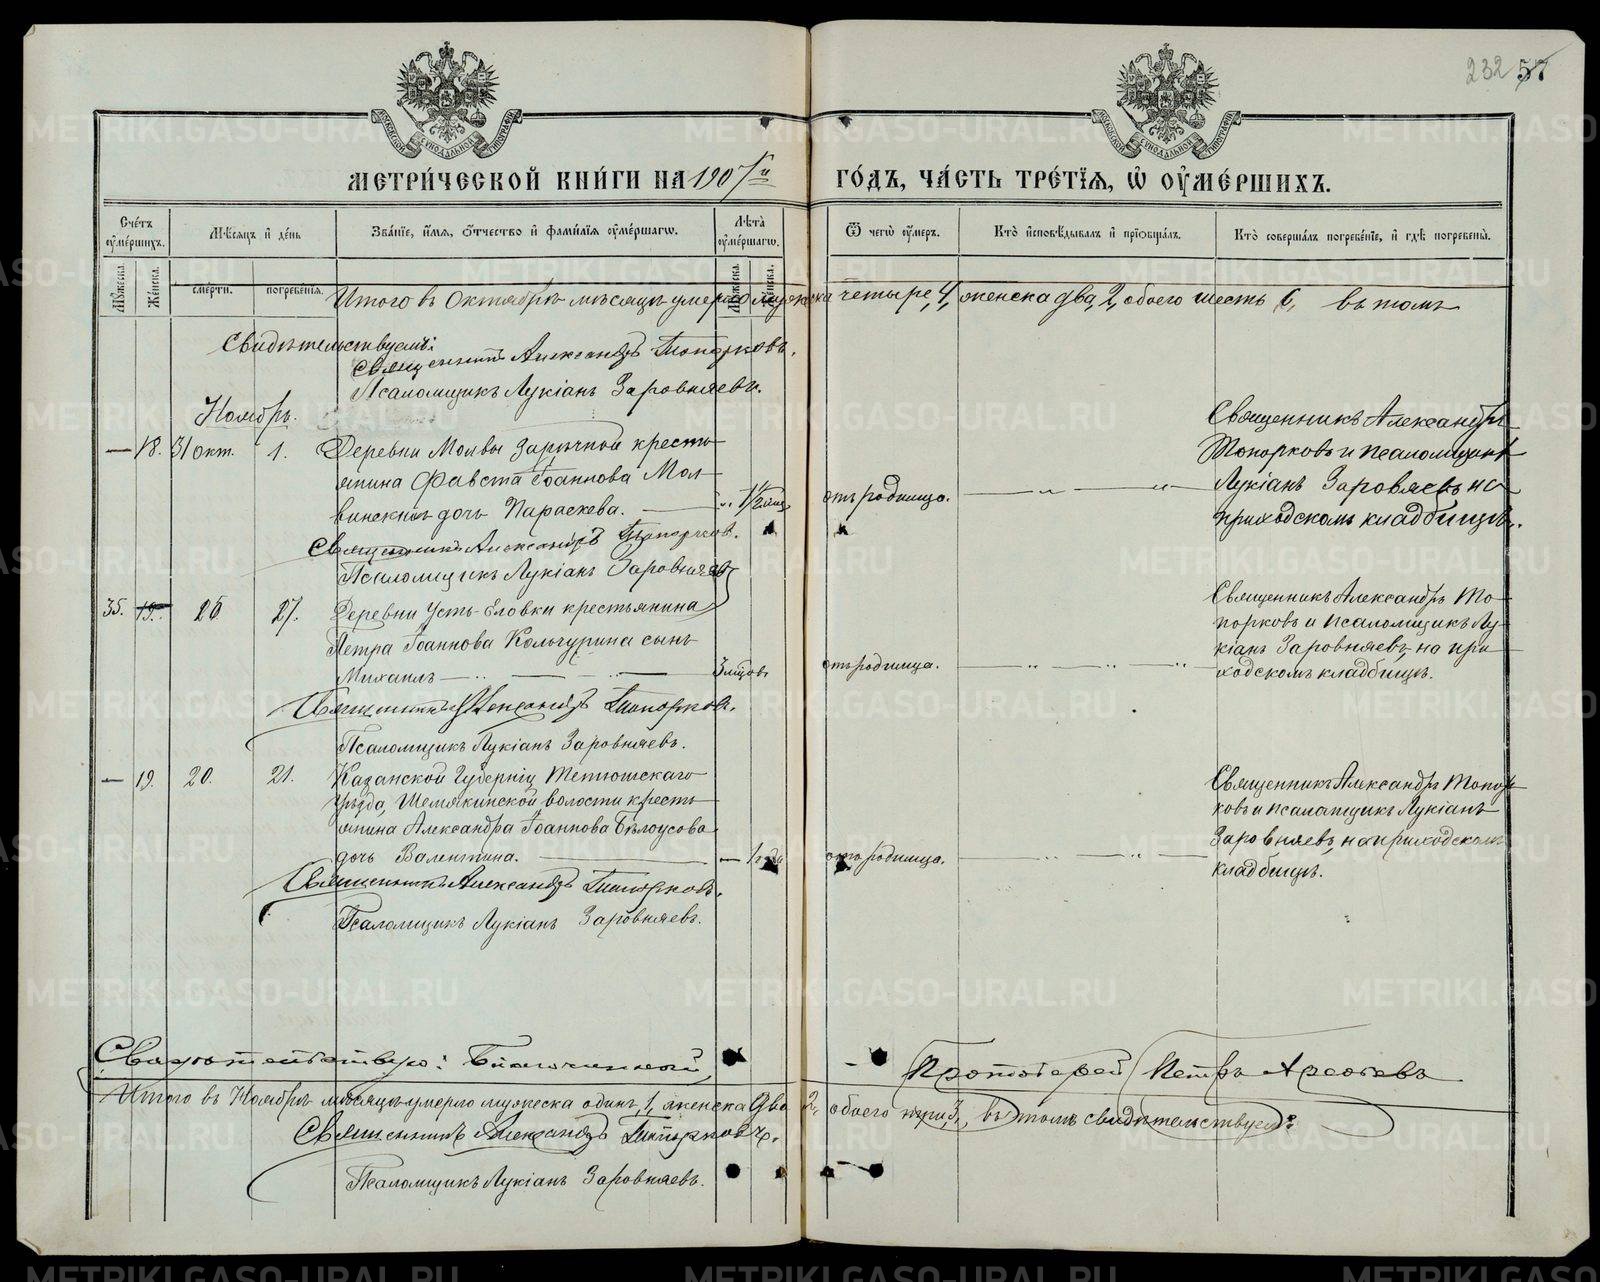 232 57
МОСКОВСКОЙ СѴНОДАЛЬНОЙ ТИПОГРАФІИ
МОСКОВСКОЙ СѴНОДАЛЬНОЙ ТИПОГРАФІИ
МЕТРИ́ЧЕСКОЙ КНИ́ГИ НА 1907 й ГО́ДЪ, ЧА́СТЬ ТРЕ́ТІЯ, Ѡ ОУМЕ́РШИХЪ.
Сче́тъ оуме́ршихъ.
Мꙋжеска.
Же́нска.
Мѣсяцъ и де́нь
сме́рти.
погребе́нія.
Зва́ніе, и́мя, о́тчество и фами́лія оуме́ршагѡ.
Лѣ́та оуме́ршагѡ.
Мꙋжеска.
Же́нска.
Ѿ чегѡ̀ оу́меръ.
Кто̀ и҆сповѣ́дывалъ и прїѡбща́лъ.
Кто̀ соверша́лъ погребе́нїе, и гдѣ̀ погребены̀.
Итого въ Октябрѣ мѣсяцѣ умерло мужеска четыре, 4, женска два, 2, обоего шесть 6, въ томъ
Свидѣтельствуемъ:
Священникъ Александръ Топорковъ.
Псаломщикъ Лукіанъ Заровняевъ.
Ноябрь.
— 18. 31 окт. 1. Деревни Молвы Зарѣчной кресть-
янина Фавста Іоаннова Мол-
винскихъ дочь Параскева. — „ 1½ мѣс. отъ родимца. — „ — „ —
Священникъ Александръ
Топорковъ и псаломщикъ
Лукіанъ Заровняевъ на
приходскомъ кладбищѣ.
Священникъ Александръ Топорков.
Псаломщикъ Лукіанъ Заровняевъ
35. 19. 26 27. Деревни Усть-Еловки крестьянина
Петра Іоаннова Кольчурина сынъ
Михаилъ — „ — „ — 3 мѣсяцовъ отъ родимца. — „ — „ — „
Священникъ Александръ То-
порковъ и псаломщикъ Лу-
кіанъ Заровняевъ, на при-
ходскомъ кладбищѣ.
Священникъ Александръ Топорков.
Псаломщикъ Лукіанъ Заровняевъ.
— 19. 20. 21. Казанской Губерніи Тетюшскаго
уѣзда, Шемякинской волости кресть-
янина Александра Іоаннова Бѣлоусова
дочь Валентина. — — 1 года отъ родимца. — „ —
Священникъ Александръ Топор-
ковъ и псаломщикъ Лукіанъ
Заровняевъ, на приходскомъ
кладбищѣ.
Священникъ Александръ Топорковъ.
Псаломщикъ Лукіанъ Заровняевъ.
Свидѣтельствую: Благочинный Протоіерей Петръ
Итого въ Ноябрѣ мѣсяцѣ умерло мужеска одинъ, 1, женска два 2, обоего три, 3, въ томъ свидѣтельствуемъ:
Священникъ Александръ Топорковъ.
Псаломщикъ Лукіанъ Заровняевъ.
METRIKI.GASO-URAL.RU